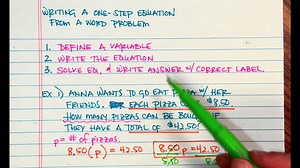 WRITING A ONE-STEP EQUATION
FROM A WORD PROBLEM
1. DEFINE A VARIABLE
2. WRITE THE EQUATION
3. SOLVE EQ, & WRITE ANSWER W/ CORRECT LABEL.
EX 1) ANNA WANTS TO GO EAT PIZZA W/ HER
FRIENDS. EACH PIZZA $8.50.
HOW MANY PIZZAS CAN BE BOUGHT IF
THEY HAVE A TOTAL OF $42.50?
p = # of pizzas.
8.50 (p) = 42.50 8.50 p = 42.50
8.50 8.50